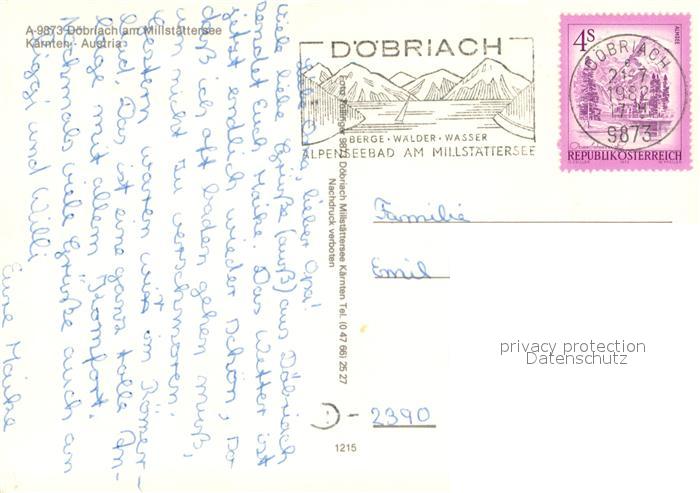 A-9873 Döbriach am Millstättersee
Kärnten - Austria
DÖBRIACH
BERGE · WÄLDER · WASSER
ALPENSEEBAD AM MILLSTÄTTERSEE
DÖBRIACH
1982
9873
4S
ALMSEE
REPUBLIK ÖSTERREICH
Liebe Oma, lieber Opa!
Viele liebe Grüße (auß) aus Döbriach
sendet Euch Maike. Das Wetter ist
jetzt endlich wieder schön, so
daß ich oft baden gehen muß,
um nicht zu verschmoren.
Gestern waren wir im Römer-
bad. Das ist eine ganz tolle An-
lage mit allem Komfort.
Nochmals viele Grüße auch an
Siggi und Willi
Eure Maike
9873 Döbriach Millstättersee Kärnten Tel. (0 47 66) 25 27
Nachdruck verboten
Familie
Emil
D - 2390
1215
privacy protection
Datenschutz